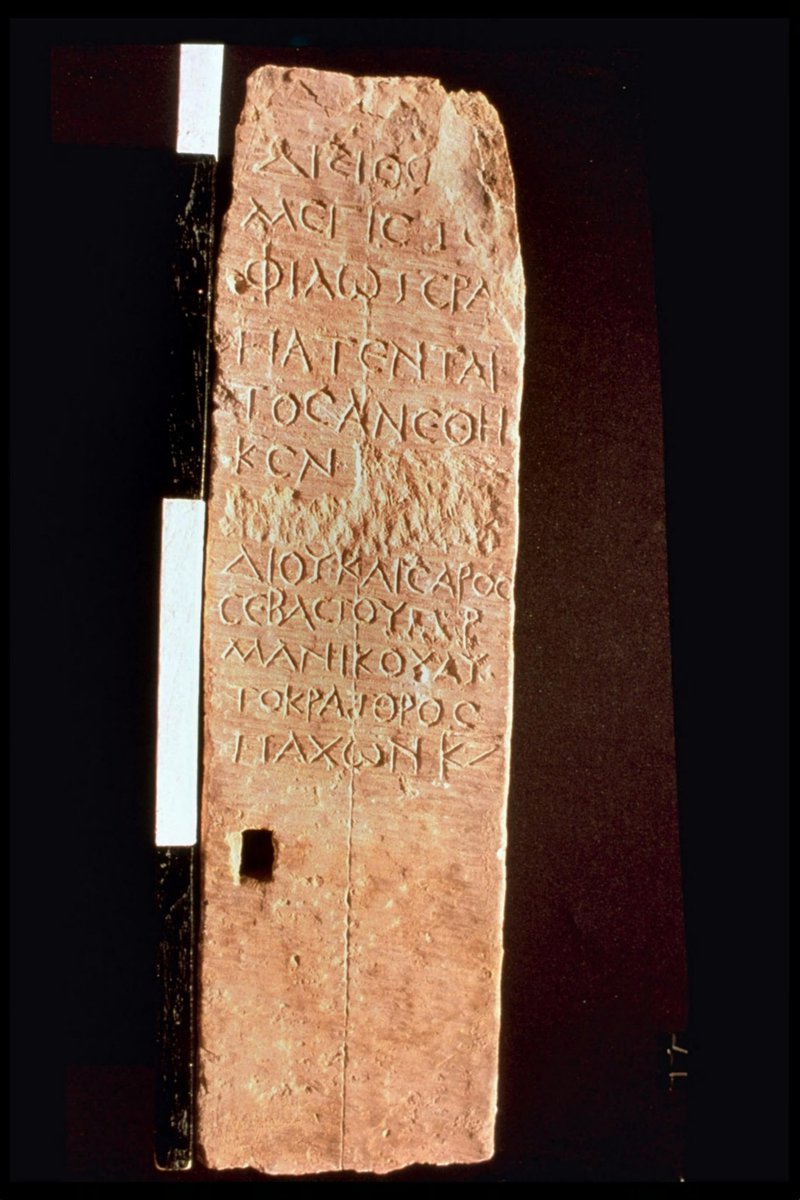 ΜΕΓΙϹΤ
ΦΙΛΩΤΕΡΑ
ΠΑΤΕΝΤΑΙ
ΤΟϹΑΝΕΘΗ
ΚΕΝ
ΔΙΟΥΚΑΙϹΑΡΟϹ
ϹΕΒΑϹΤΟΥΓΕΡ
ΜΑΝΙΚΟΥΑΥ
ΤΟΚΡΑΤΟΡΟϹ
ΠΑΧΩΝ ΚΖ